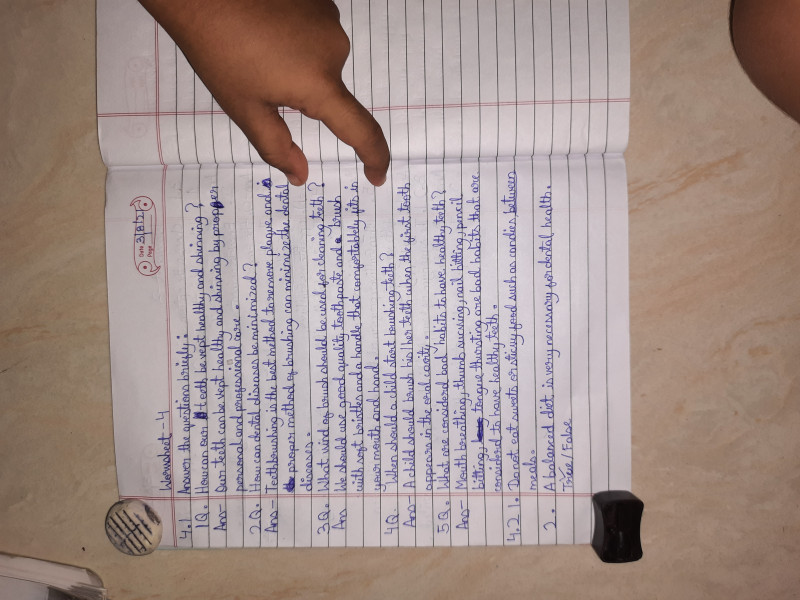 Date 3/8/21
Page
Worksheet - 4
4.1 Answer the questions briefly :
1Q. How can our tooth be kept healthy and shinning ?
Ans- Our teeth can be kept healthy and shinning by propper
personal and professional care .
2Q. How can dental diseases be minimized ?
Ans- Toothbrushing is the best method to remove plaque and
proper method of brushing can minimize the dental
diseases .
3Q. What kind of brush should be used for cleaning teeth ?
Ans We should use good quality tooth paste and a brush
with soft bristles and a handle that comfortabkly fits in
your mouth and hand .
4Q. When should a child start brushing teeth ?
Ans- A child should brush his/her teeth when the first tooth
appears in the oral cavity .
5Q. What are considered bad habits to have healthy teeth ?
Ans- Mouth breathing, thumb sucking, nail bitting, pencil
bitting, tongue thursting are bad habits that are
considered to have healthy teeth .
4.2 1. Do not eat sweets or sticky food such as candies between
meals.
2. A balanced diet is very necessary for dental health .
True / False